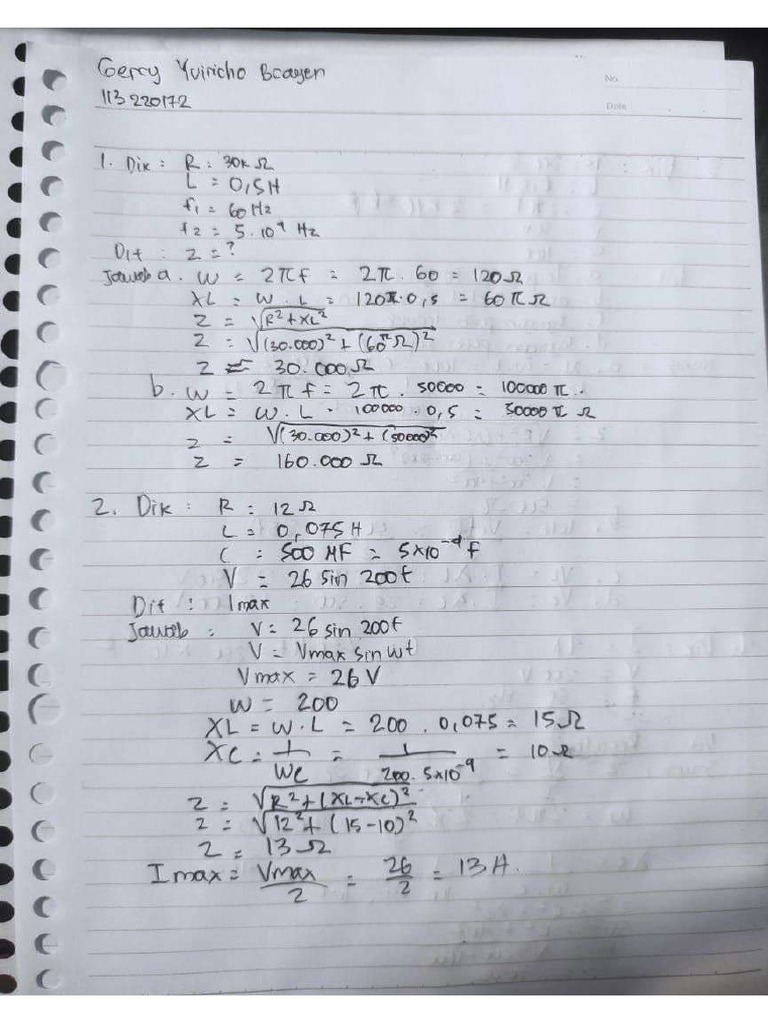 Gercy Yuiricho Bcayen
No.
113220172
Date
1. Dik : R : 30k Ω
L = 0,5 H
f1 = 60 Hz
f2 = 5.10⁴ Hz
Dit : Z = ?
Jawab a. W = 2πf = 2π . 60 = 120 Ω
XL = W . L = 120π.0,5 = 60π Ω
Z = √R²+XL²
Z = √(30.000)² + (60πΩ)²
Z ≈ 30.000 Ω
b. W = 2πf = 2π . 50000 = 100000 π .
XL = W . L . 100000 . 0,5 = 50000π Ω
Z = √(30.000)² + (50000)²
Z = 160.000 Ω
2. Dik : R : 12 Ω
L = 0,075 H
C = 500 MF = 5x10⁻⁴ f
V = 26 sin 200t
Dit : Imax
Jawab : V = 26 sin 200t
V = Vmax sin wt
Vmax = 26 V
W = 200
XL = W . L = 200 . 0,075 = 15 Ω
XC = 1/WC = 1/200. 5x10⁻⁴ = 10 Ω
Z = √R² + (XL-XC)²
Z = √12² + (15-10)²
Z = 13 Ω
I max = Vmax/2 = 26/2 = 13 A.